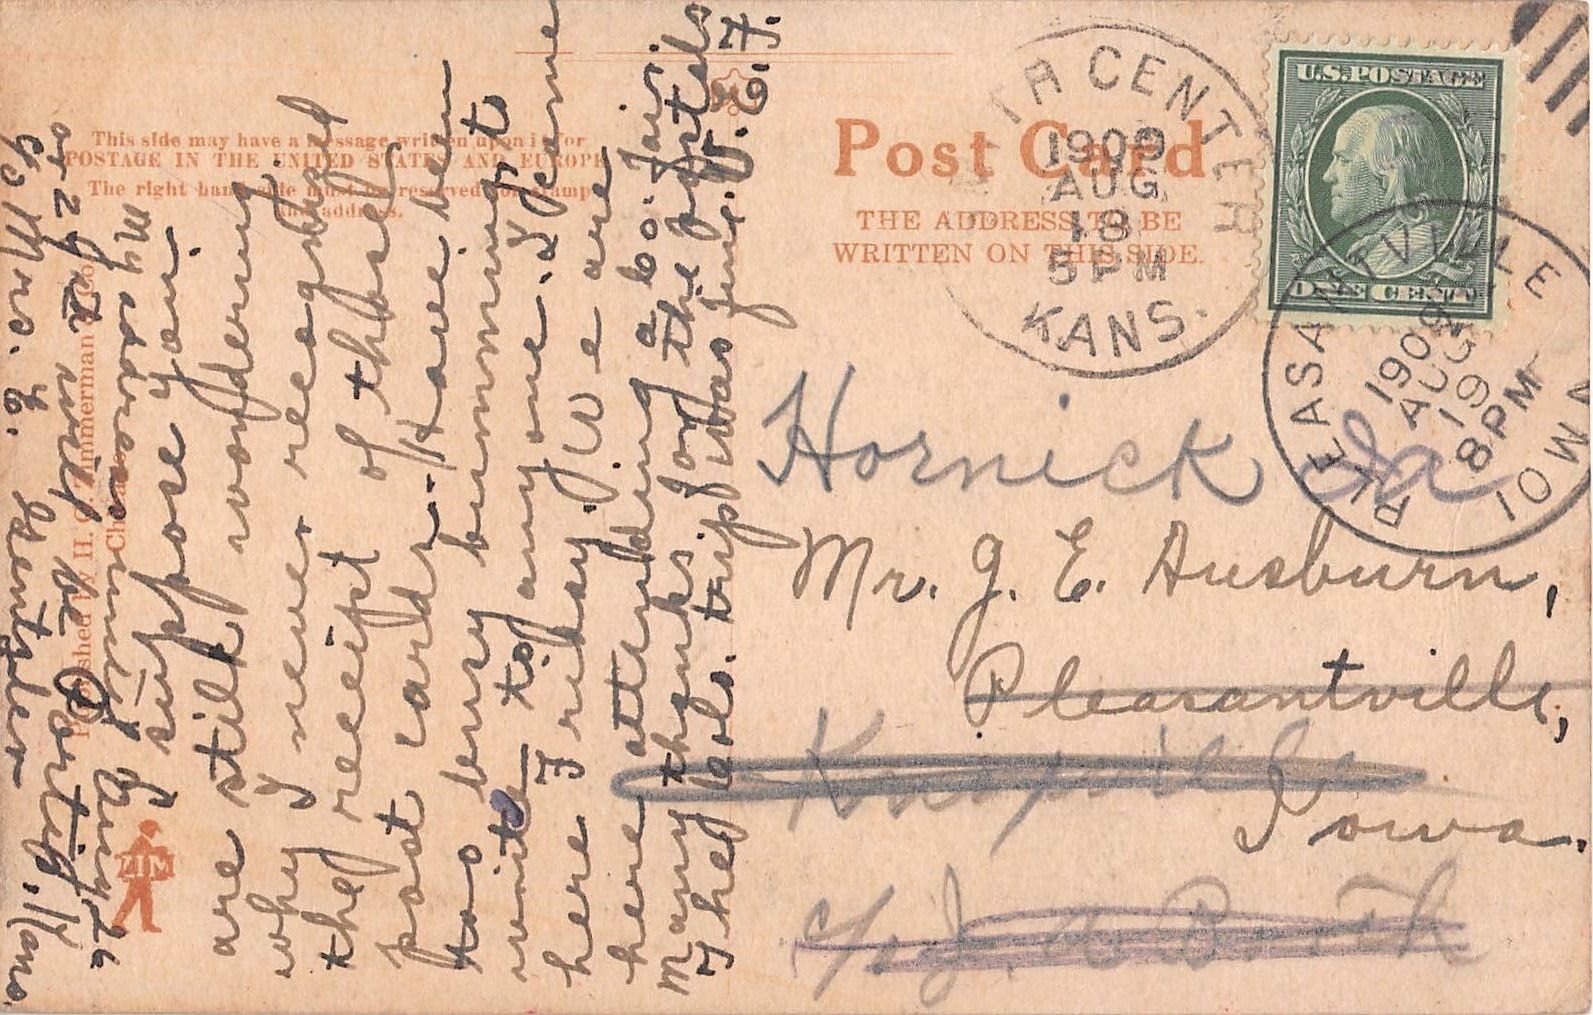 This side may have a message written upon it for
POSTAGE IN THE UNITED STATES AND EUROPE
The right hand side must be reserved for stamp
and address.
Post Card
THE ADDRESS TO BE
WRITTEN ON THIS SIDE.
CENTER
1909
AUG
18
5 PM
KANS.
U.S. POSTAGE
ONE CENT
PLEASANTVILLE
1909
AUG
19
8 PM
IOWA
Hornick Ia
Mr. J. E. Ausburn,
Pleasantville,
Iowa.
c/o J.
ZIM
Published by H. G. Zimmerman & Co.
suppose you
are still wondering
why I never recognized
the receipt of those
post cards. Have been
too busy bumming to
write to any one. I came
here Friday. We are
here attending a Co. Fair.
Many thanks for the postals
The Colo. trip was fine. W. E. F.
My address until Aug 26
or 27 it will be